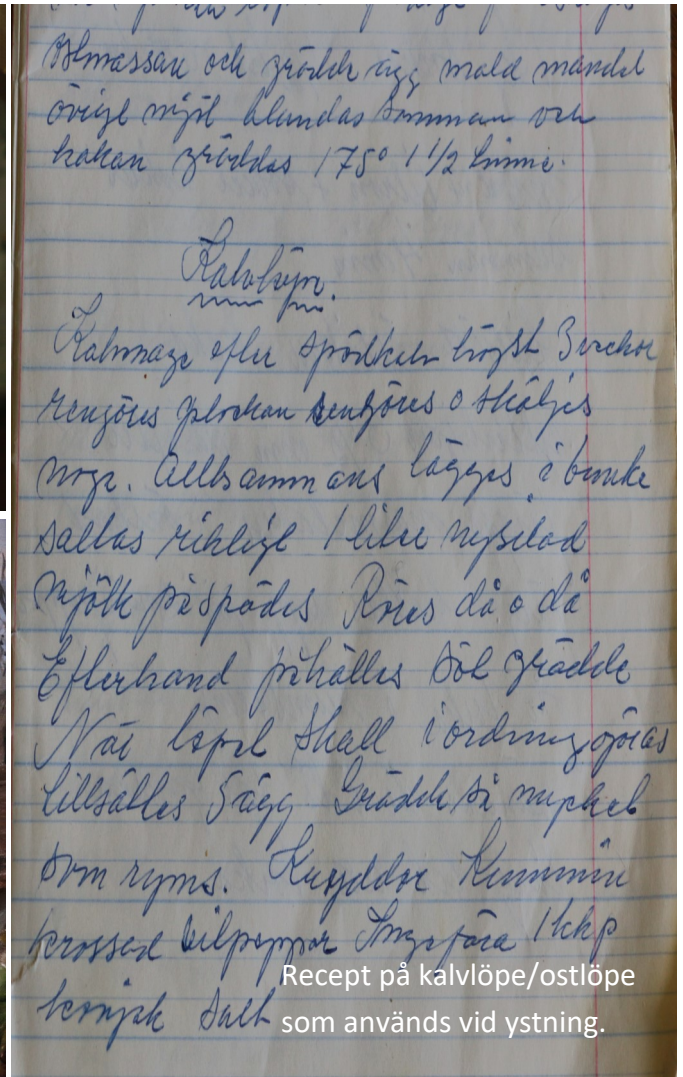 ostmassan och grädde ägg mald mandel
övrigt mjöl blandas samman och
kakan gräddas 175° 1 1/2 timme.
Kalvlöpe.
Kalvmage efter spädkalv högst 3 veckor
rengöres plockan rengöres o sköljes
noga. Allt sammans lägges i bunke
saltas rikligt 1 liter nysilad
mjölk påspädes Röres då o då
Efterhand påhälles söt grädde
När löpet skall iordninggöras
tillsättes 5 ägg Grädde så mycket
som ryms. Kryddor Kummin
krossad vitpeppar Ingefära 1 kkp
konjak Salt
Recept på kalvlöpe/ostlöpe
som används vid ystning.